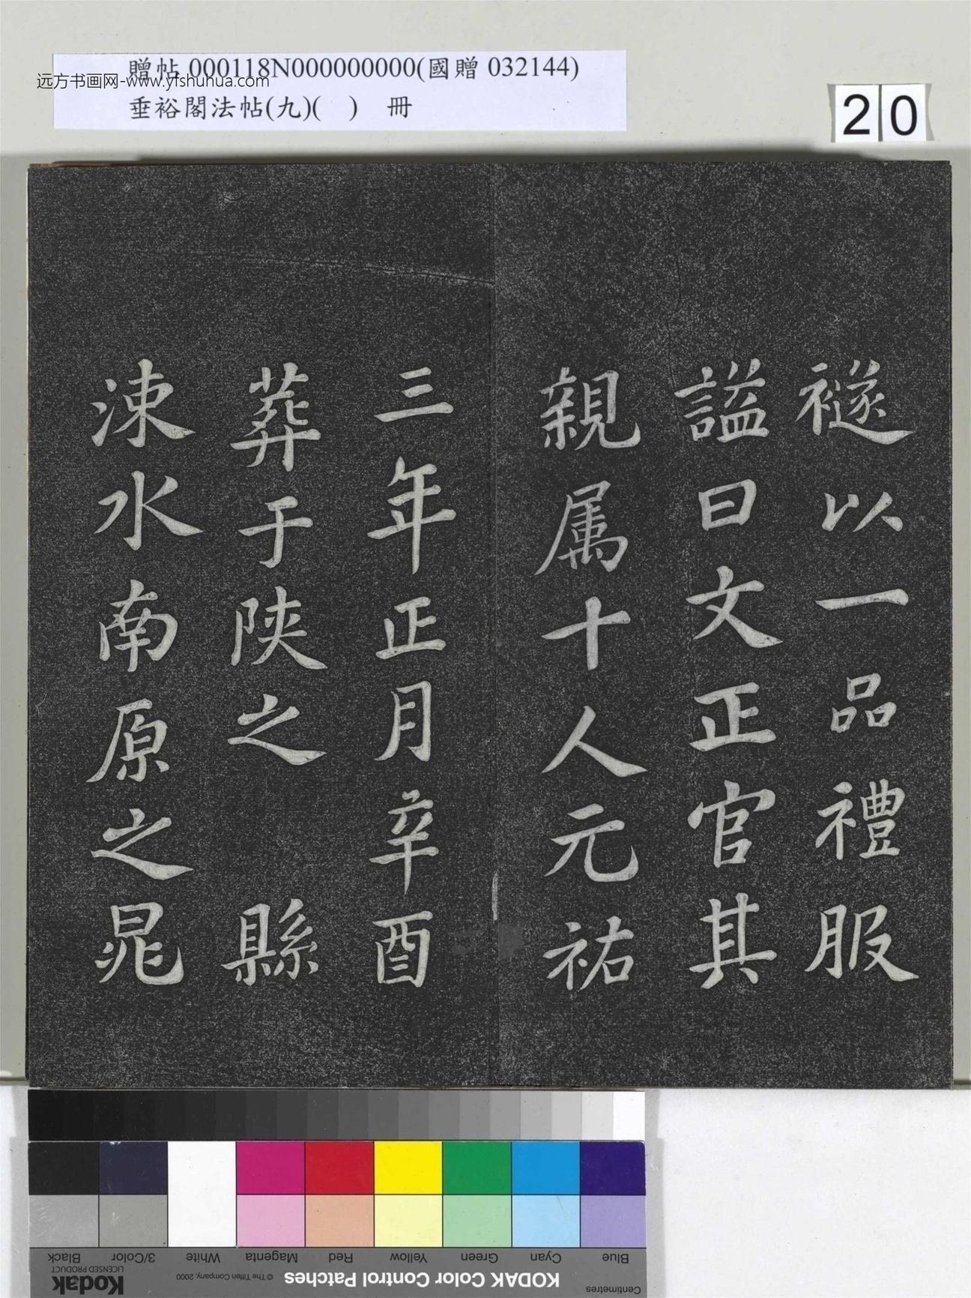 贈帖 000118N000000000(國贈 032144)
远方书画网-www.yfshuhua.com
垂裕閣法帖(九)( ) 冊
20
襚以一品禮服
謚曰文正官其
親属十人元祐
三年正月辛酉
葬于陝之 縣
涑水南原之晁
Blue Cyan Green Yellow Red Magenta White 3/Color Black
Centimetres KODAK Color Control Patches © The Tiffen Company, 2000 Kodak LICENSED PRODUCT